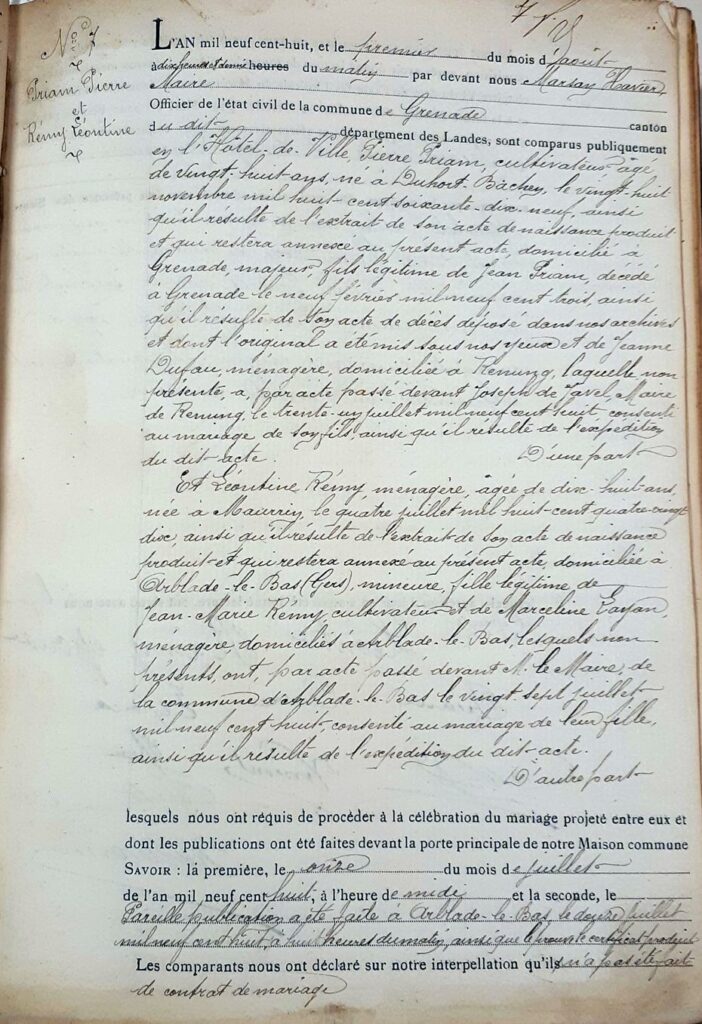 N° 7
Priam Pierre
et
Rémy Léontine
L'AN mil neuf cent-huit, et le premier du mois d'août
à dix heures et demie heures du matin par devant nous Marsan Xavier,
Maire
Officier de l'état civil de la commune de Grenade canton
du dit département des Landes, sont comparus publiquement
en l'Hôtel-de-Ville, Pierre Priam, cultivateur, âgé
de vingt-huit ans, né à Duhort-Bachen, le vingt-huit
novembre mil huit cent soixante-dix-neuf, ainsi
qu'il résulte de l'extrait de son acte de naissance produit
et qui restera annexé au présent acte, domicilié à
Grenade, majeur, fils légitime de Jean Priam, décédé
à Grenade le neuf février mil neuf cent trois, ainsi
qu'il résulte de son acte de décès déposé dans nos archives
et dont l'original a été mis sous nos yeux et de Jeanne
Dufau, ménagère, domiciliée à Renung, laquelle non
présente a, par acte passé devant Joseph de Javel, Maire
de Renung, le trente-un juillet mil neuf cent huit, consenti
au mariage de son fils, ainsi qu'il résulte de l'expédition
du dit acte. D'une part
Et Léontine Rémy, ménagère, âgée de dix-huit ans,
née à Maurrin, le quatre juillet mil huit-cent quatre-vingt
dix, ainsi qu'il résulte de l'extrait de son acte de naissance
produit et qui restera annexé au présent acte, domiciliée à
Arblade-le-Bas (Gers), mineure, fille légitime de
Jean-Marie Rémy, cultivateur et de Marceline
ménagère, domiciliés à Arblade-le-Bas, lesquels non
présents, ont, par acte passé devant M. le Maire, de
la commune d'Arblade-le-Bas le vingt sept juillet
mil neuf cent huit, consenti au mariage de leur fille,
ainsi qu'il résulte de l'expédition du dit acte.
D'autre part
lesquels nous ont réquis de procéder à la célébration du mariage projeté entre eux et
dont les publications ont été faites devant la porte principale de notre Maison commune
SAVOIR : lá première, le onze du mois de juillet
de l'an mil neuf cent huit, à l'heure de midi et la seconde, le
Pareille publication a été faite à Arblade-le-Bas, le douze juillet
mil neuf cent huit, à huit heures du matin, ainsi que le prouve le certificat produit
Les comparants nous ont déclaré sur notre interpellation qu'ils n'a pas été fait
de contrat de mariage